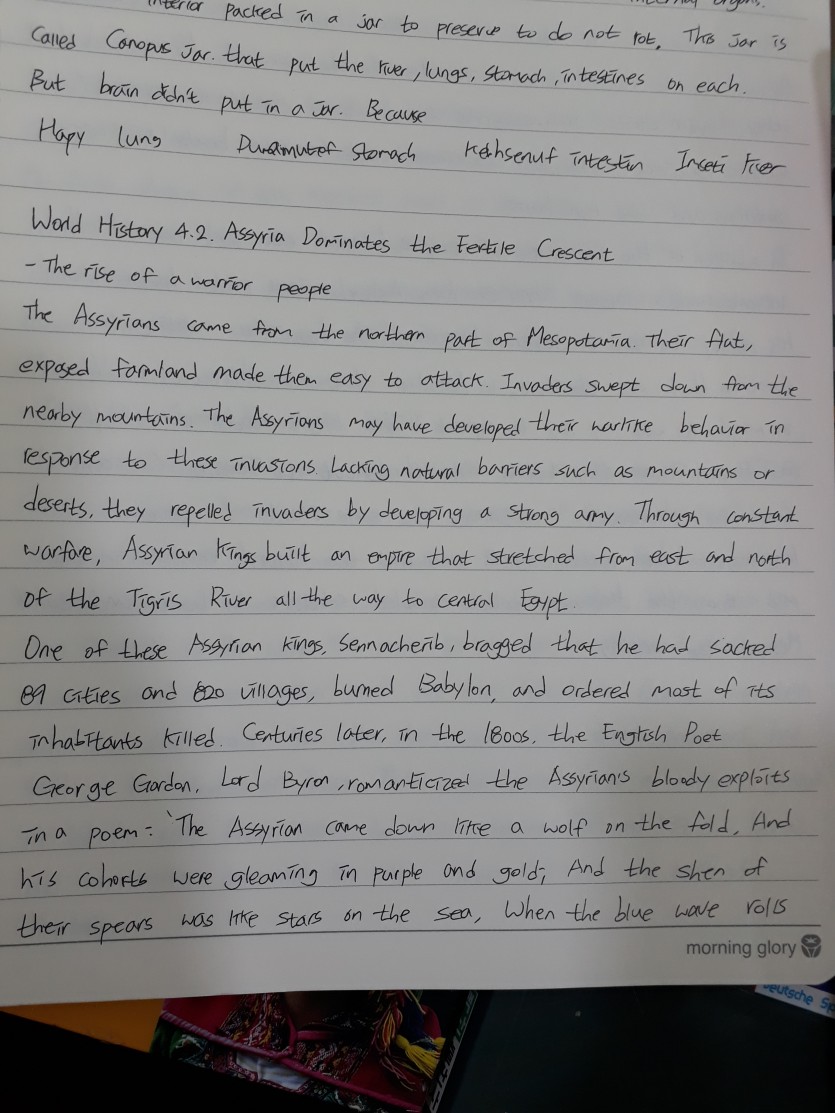 interior packed in a jar to preserve to do not rot. This jar is
Called Canopus Jar. that put the river, lungs, stomach, intestines on each.
But brain didn't put in a jar. Because
Hapy lung Duamutef Stomach Kebhsenuf intestin Imseti river
World History 4.2. Assyria Dominates the Fertile Crescent
- The rise of a warrior people
The Assyrians came from the northern part of Mesopotamia. Their flat,
exposed farmland made them easy to attack. Invaders swept down from the
nearby mountains. The Assyrians may have developed their warlike behavior in
response to these invasions. Lacking natural barriers such as mountains or
deserts, they repelled invaders by developing a strong army. Through constant
warfare, Assyrian Kings built an empire that stretched from east and north
of the Tigris River all the way to central Egypt.
One of these Assyrian kings, Sennacherib, bragged that he had sacked
89 cities and 820 villages, burned Babylon, and ordered most of its
inhabitants killed. Centuries later, in the 1800s, the English Poet
George Gordon, Lord Byron, romanticized the Assyrian's bloody exploits
in a poem: 'The Assyrian came down like a wolf on the fold, And
his cohorts were gleaming in purple and gold; And the shen of
their spears was like stars on the sea, When the blue wave rolls
morning glory
Deutsche